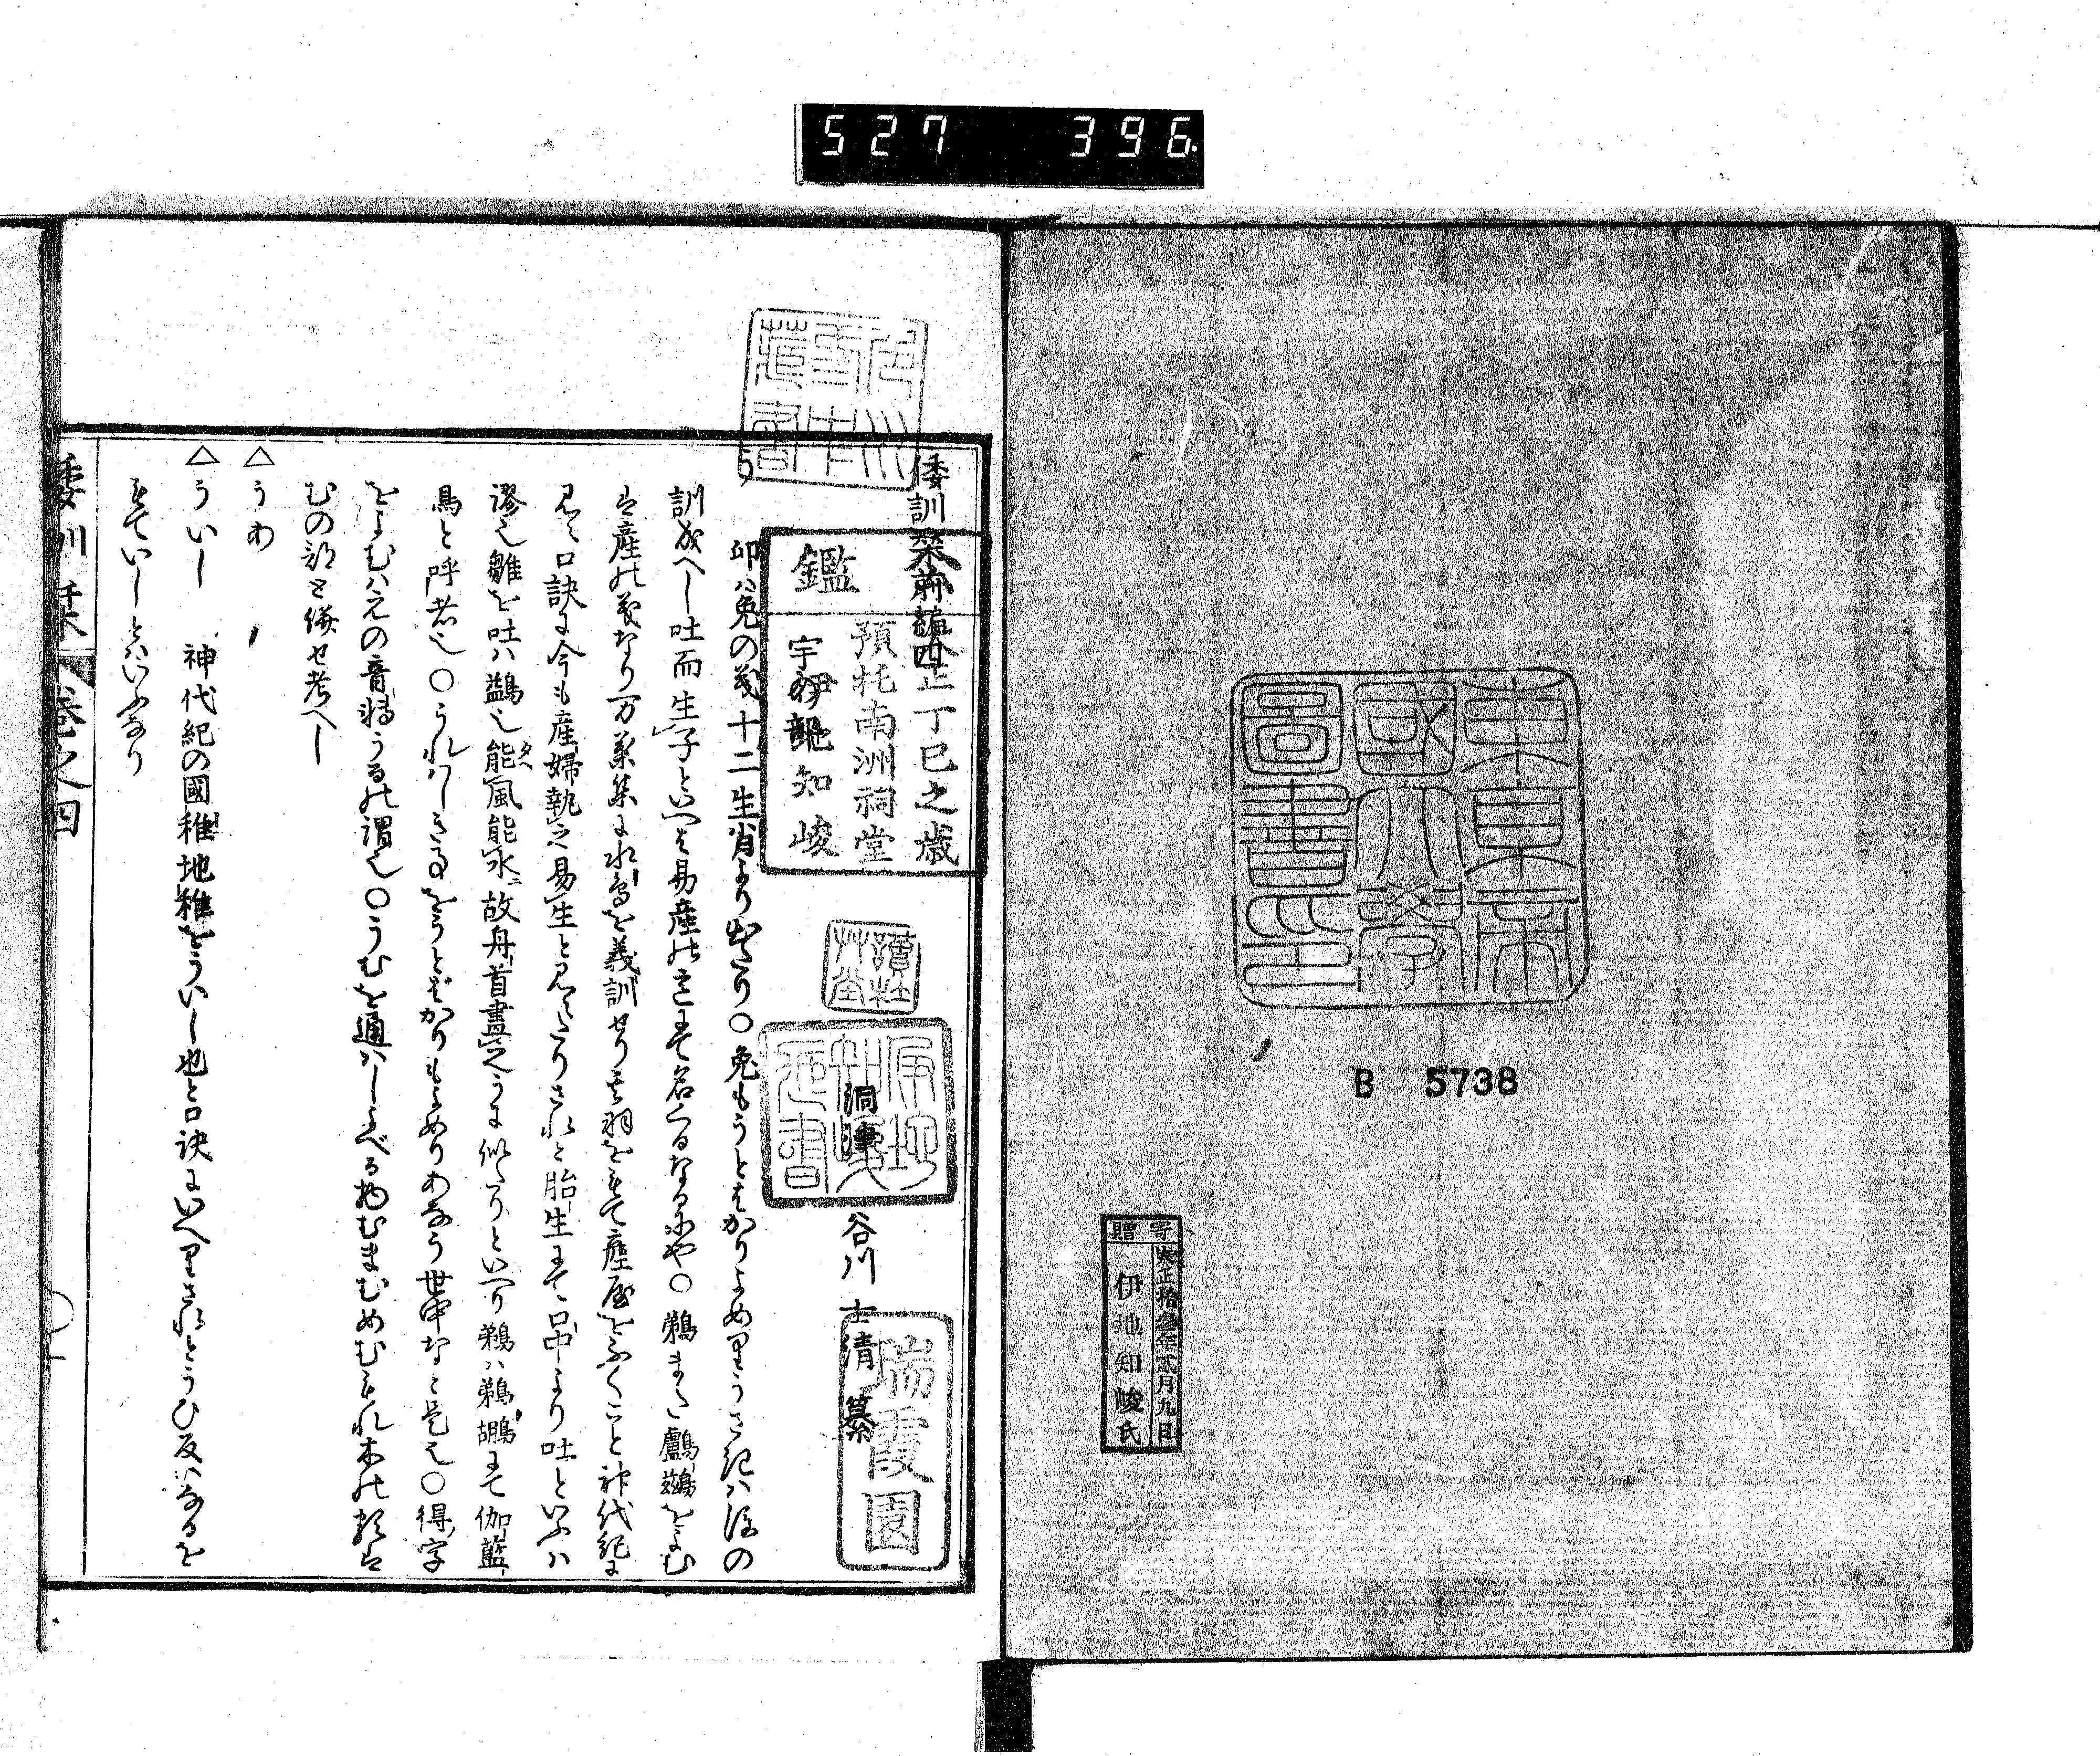 527 396.
東京帝
國大學
圖書印
B 5738
寄贈
大正拾參年貳月九日
伊地知峻氏
倭訓栞前編四
大正丁巳之歳
預托南洲祠堂
伊地知峻
鑑
洞津 谷川士清纂
瑞霞園
う
卯ハ兔の義十二生肖より出たり〇兔もうとはかりよめりうさきハ後の
訓成へし吐而生子といへは易産の意にて名くるなるにや〇鵜また鸕鷀をよむ
は産の義なり万葉集に水烏を義訓せり其羽をもて産屋をふくこと神代紀に
見ゆ口訣に今も産婦執之易生と見えたりされと胎生にて口中より吐といふハ
謬也雛を吐ハ鷁也能風能水故舟首畫之うに似たりといへり鵜ハ鵜鶘にて伽藍
鳥と呼者也〇うれはしき事をうとばかりもよめりあなう世中なと是也〇得字
をよむハえの音轉うるの謂也〇うむを通ハしよべる梅むまむめむもれ木の類は
むの部と併せ考へし
△うあ
△ういし 神代紀の國稚地稚をういし也と口訣にいへりされとうひ反いなるを
もていしとハいふなり
倭訓栞 卷之四